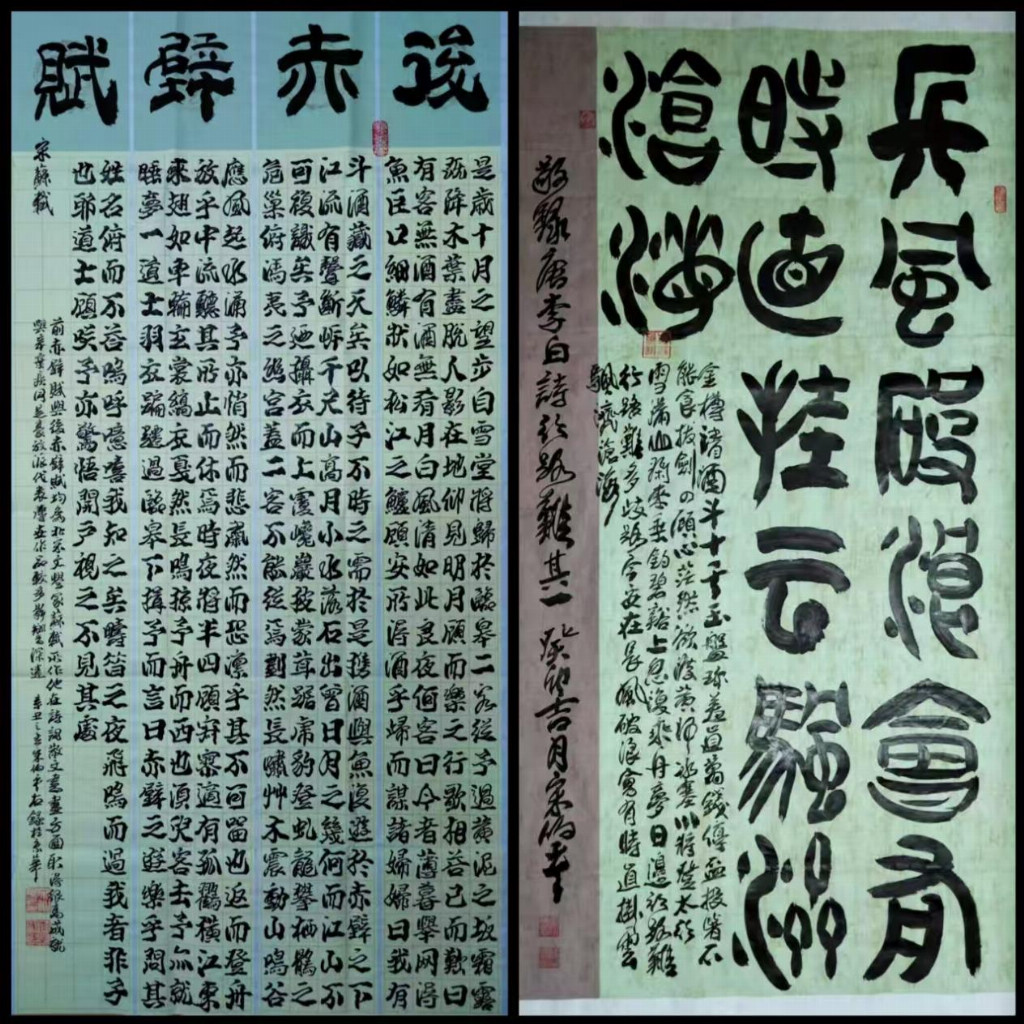 後赤壁賦
是歲十月之望步自雪堂將歸於臨皋二客從予過黃泥之坂霜露
既降木葉盡脫人影在地仰見明月顧而樂之行歌相答已而歎曰
有客無酒有酒無肴月白風清如此良夜何客曰今者薄暮舉网得
魚巨口細鱗狀如松江之鱸顧安所得酒乎歸而謀諸婦婦曰我有
斗酒藏之久矣以待子不時之需於是攜酒與魚復遊於赤壁之下
江流有聲斷岸千尺山高月小水落石出曾日月之幾何而江山不
可復識矣予廼攝衣而上履巉巖披蒙茸踞虎豹登虬龍攀栖鶻之
危巢俯馮夷之幽宮蓋二客不能從焉劃然長嘯艸木震動山鳴谷
應風起水涌予亦悄然而悲肅然而恐凜乎其不可留也返而登舟
放乎中流聽其所止而休焉時夜將半四顧寂寥適有孤鶴橫江東
來翅如車輪玄裳縞衣戛然長鳴掠予舟而西也須臾客去予亦就
睡夢一道士羽衣蹁躚過臨皋下揖予而言曰赤壁之遊樂乎問其
姓名俯而不答嗚呼噫嘻我知之矣疇昔之夜飛鳴而過我者非子
也耶道士顧笑予亦驚悟開戶視之不見其處
宋蘇軾
前赤壁賦與後赤壁賦均為北宋文學家蘇軾所作他在語詞散文畫方面取得很高成就
長風破浪會有
時直挂云帆濟
滄海
金樽清酒斗十千玉盤珍羞直萬錢停盃投箸不
能食拔劍四顧心茫然欲渡黃河冰塞川將登太行
雪滿山閑來垂釣碧谿上忽復乘舟夢日邊行路難
行路難多歧路今安在長風破浪會有時直掛雲
帆濟滄海
敬錄唐李白詩行路難其一 癸卯吉月宋伯